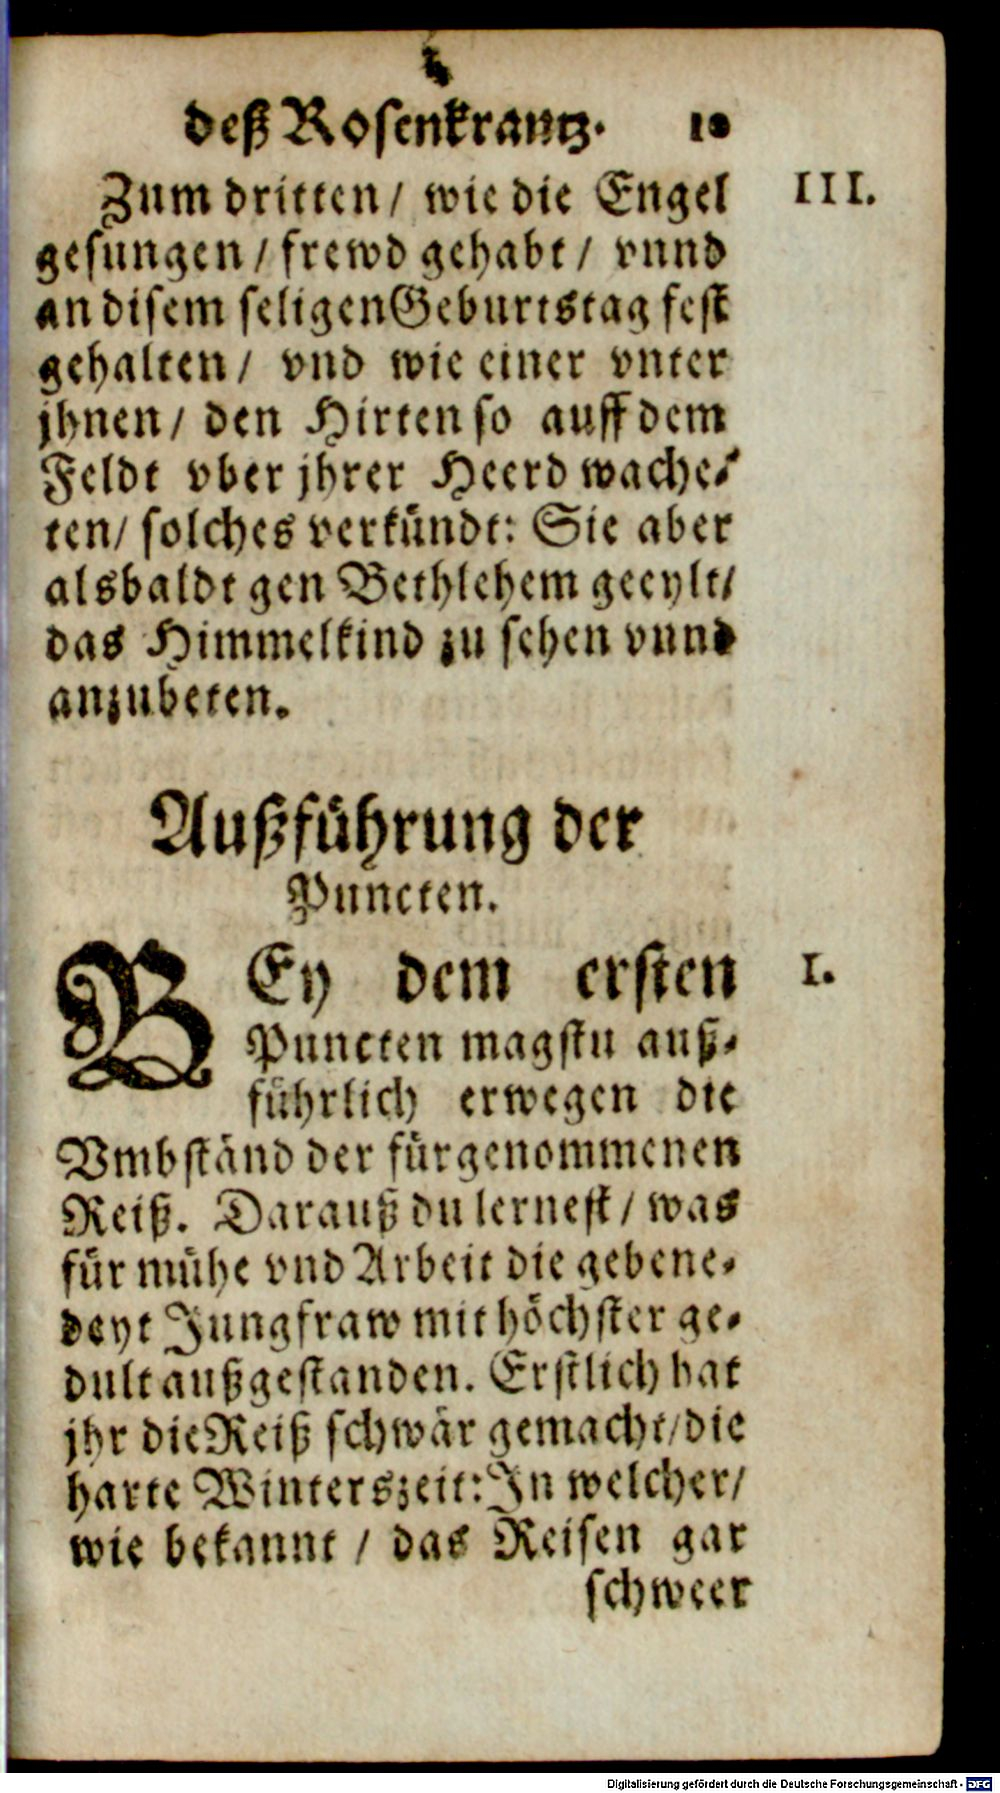 deß Rosenkrantz. 10
Zum dritten/ wie die Engel III.
gesungen/ frewd gehabt/ vnnd
an disem seligen Geburtstag fest
gehalten/ vnd wie einer vnter
jhnen/ den Hirten so auff dem
Feldt vber jhrer Heerd wache-
ten/ solches verkündt: Sie aber
alsbaldt gen Bethlehem geeylt/
das Himmelkind zu sehen vnnd
anzubeten.
Außführung der
Puncten.
BEy dem ersten I.
Puncten magstu auß-
führlich erwegen die
Vmbständ der fürgenommenen
Reiß. Darauß du lernest/ was
für mühe vnd Arbeit die gebene-
deyt Jungfraw mit höchster ge-
dult außgestanden. Erstlich hat
jhr die Reiß schwär gemacht/die
harte Winterszeit: In welcher/
wie bekannt / das Reisen gar
schweer
Digitalisierung gefördert durch die Deutsche Forschungsgemeinschaft - DFG